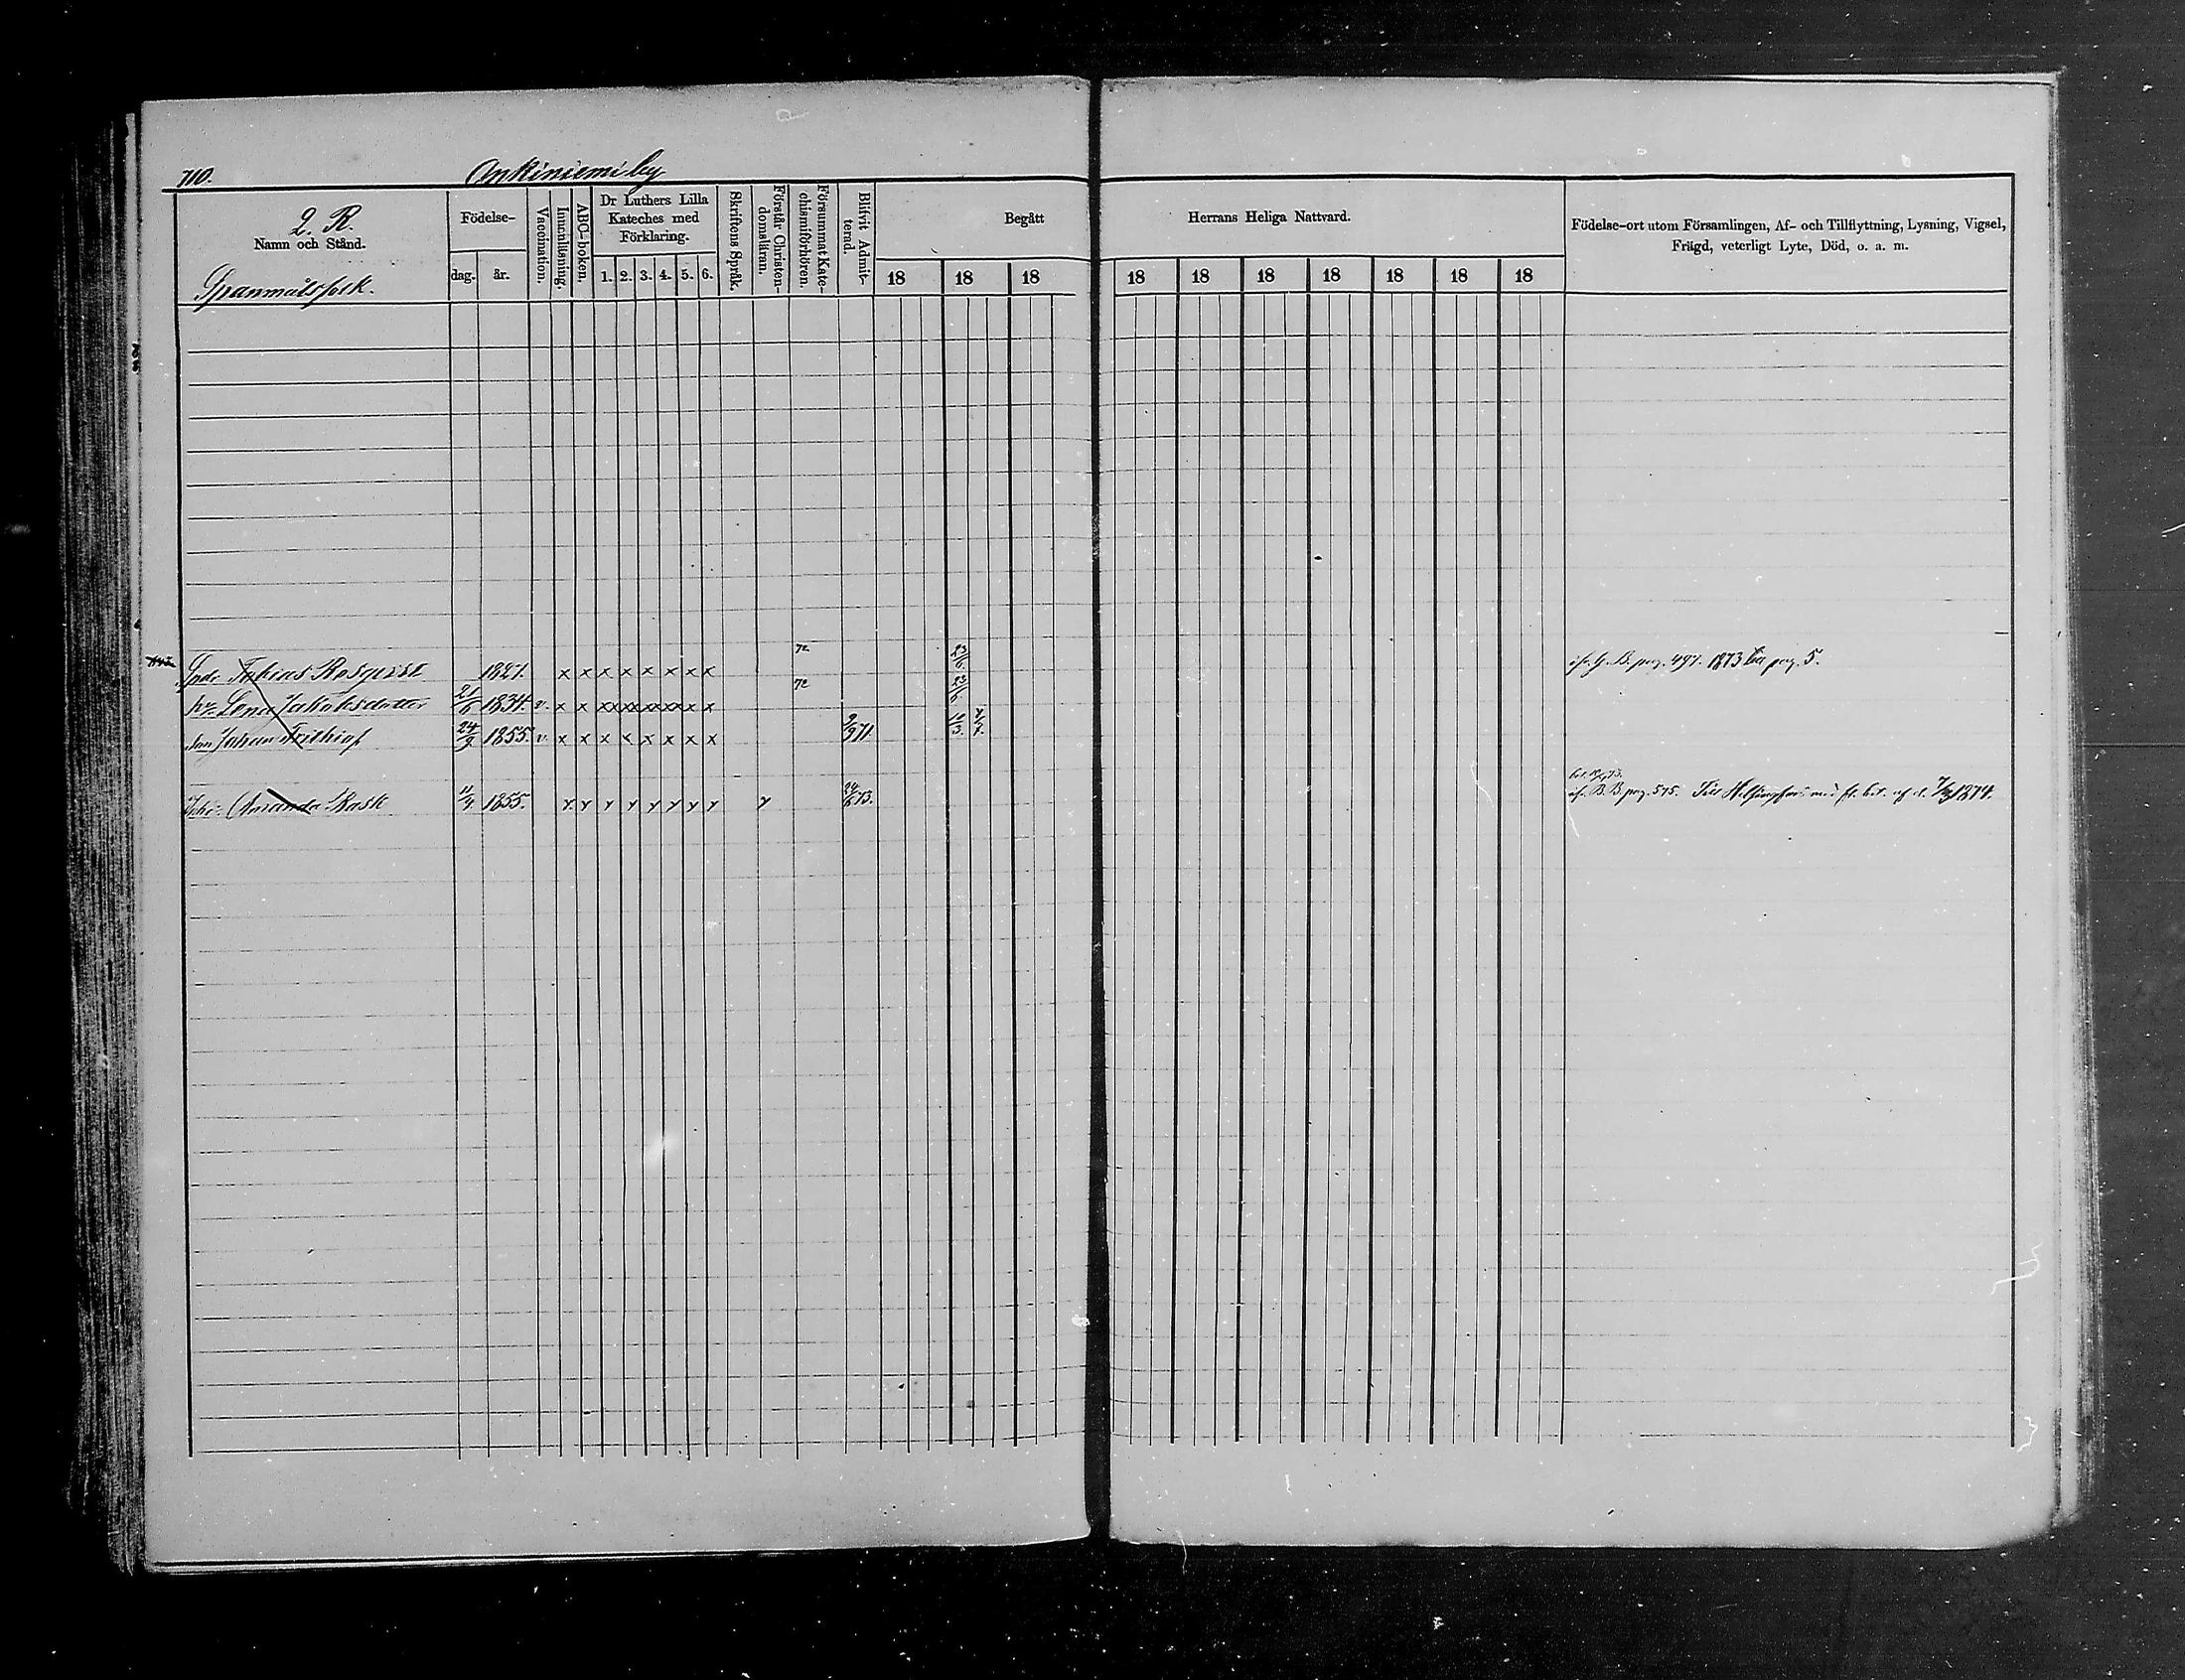 710. Ankiniemi by
2. R.
Namn och Stånd.
Spanmålsfolk.
Födelse-
dag. år.
Vaccination.
Innenläsning.
ABC-boken.
Dr Luthers Lilla
Kateches med
Förklaring.
1. 2. 3. 4. 5. 6.
Skriftens Språk.
Förstår Christen-
domsläran.
Försummat Kate-
chismiförhören.
Blifvit Admit-
terad.
Begått
18 18 18
Herrans Heliga Nattvard.
18 18 18 18 18 18 18
Födelse-ort utom Församlingen, Af- och Tillflyttning, Lysning, Vigsel,
Frägd, veterligt Lyte, Död, o. a. m.
Tobias Rosqvist 1827. x x x x x x x x 72 23/6. G. B. pag. 497. 1873 till pag. 5.
hu. Lena Jakobsdotter 21/6 1834. v. x x xx xx xx xx x x 72 23/6.
Johan Frithiof 24/9 1855. v. x x x x x x x x 9/9 71. 10/3. 7/7.
Amanda Rask 11/4 1855. x x x x x x x x x 24/6 73. B. B. pag. 575. Till Helsingfors med fl. bet. af d. 1874.